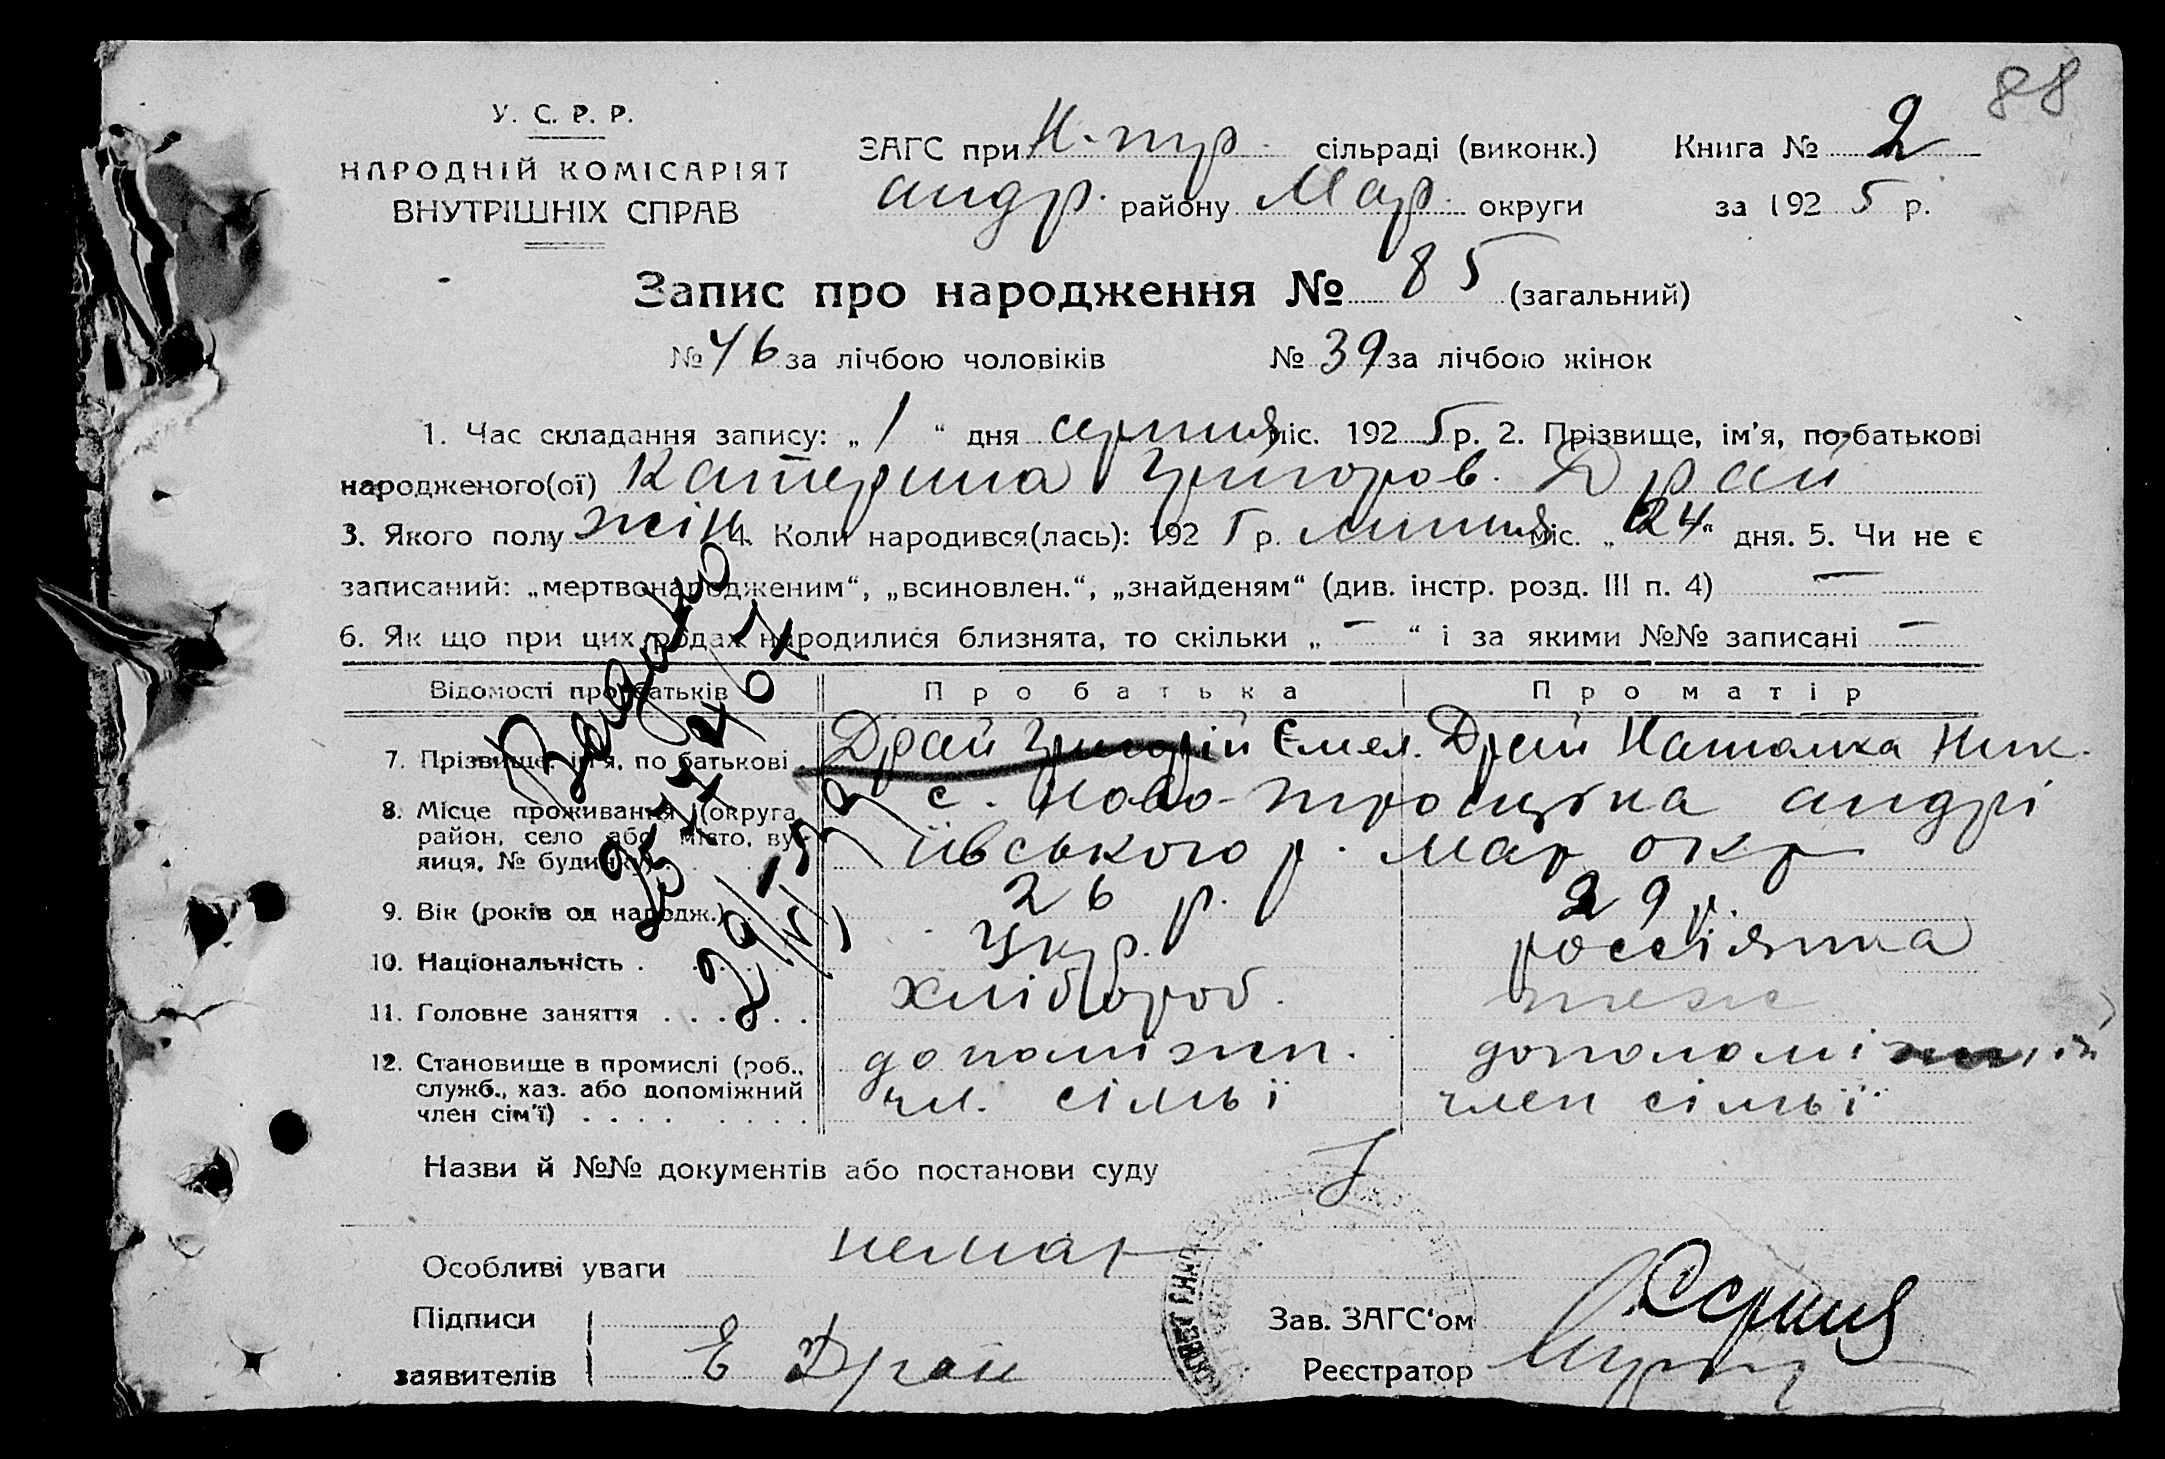 88
У. С. Р. Р.
НАРОДНІЙ КОМІСАРІЯТ
ВНУТРІШНІХ СПРАВ
ЗАГС при Н.-тр. сільраді (виконк.) Книга № 2
андр. району Мар. округи за 1925 р.
Запис про народження № 85 (загальний)
№ 46 за лічбою чоловіків № 39 за лічбою жінок
1. Час складання запису: „1“ дня серпня міс. 1925 р. 2. Прізвище, ім’я, по-батькові
народженого(ої) Катерина Григоров. Драй
3. Якого полу жін. 4. Коли народився(лась): 1925 р. липня міс. „24“ дня. 5. Чи не є
записаний: „мертвонародженим“, „всиновлен.“, „знайденям“ (див. інстр. розд. III п. 4) —
6. Як що при цих родах народилися близнята, то скільки „ — “ і за якими №№ записані —
Відомості про батьків Про батька Про матір
7. Прізвище, ім’я, по батькові . Драй Григорій Ємел. Драй Наталка Ник.
8. Місце проживання (округа, район, село або місто, вулиця, № будинку) с. Ново-троицька андрі
ївського р. Мар окр
9. Вік (років од народж.) 26 р. 29 р.
10. Національність . Укр. россіянка
11. Головне заняття . . . . . . хлібороб. теж
12. Становище в промислі (роб., допоміжн. дополоміжний
служб., хаз. або допоміжний чл. сімьї член сімьї
член сім’ї) . . . . . . . .
Назви й №№ документів або постанови суду
Особливі уваги немає
Підписи Зав. ЗАГС‘ом
заявителів Е Драй Реєстратор